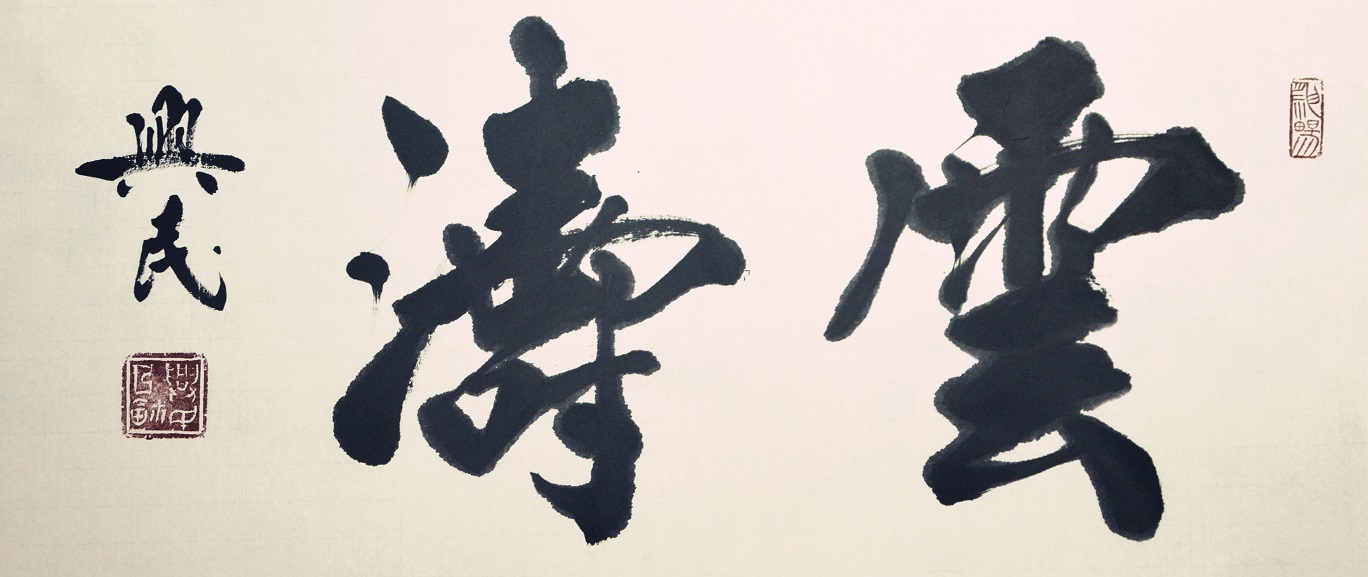 雲濤
興民